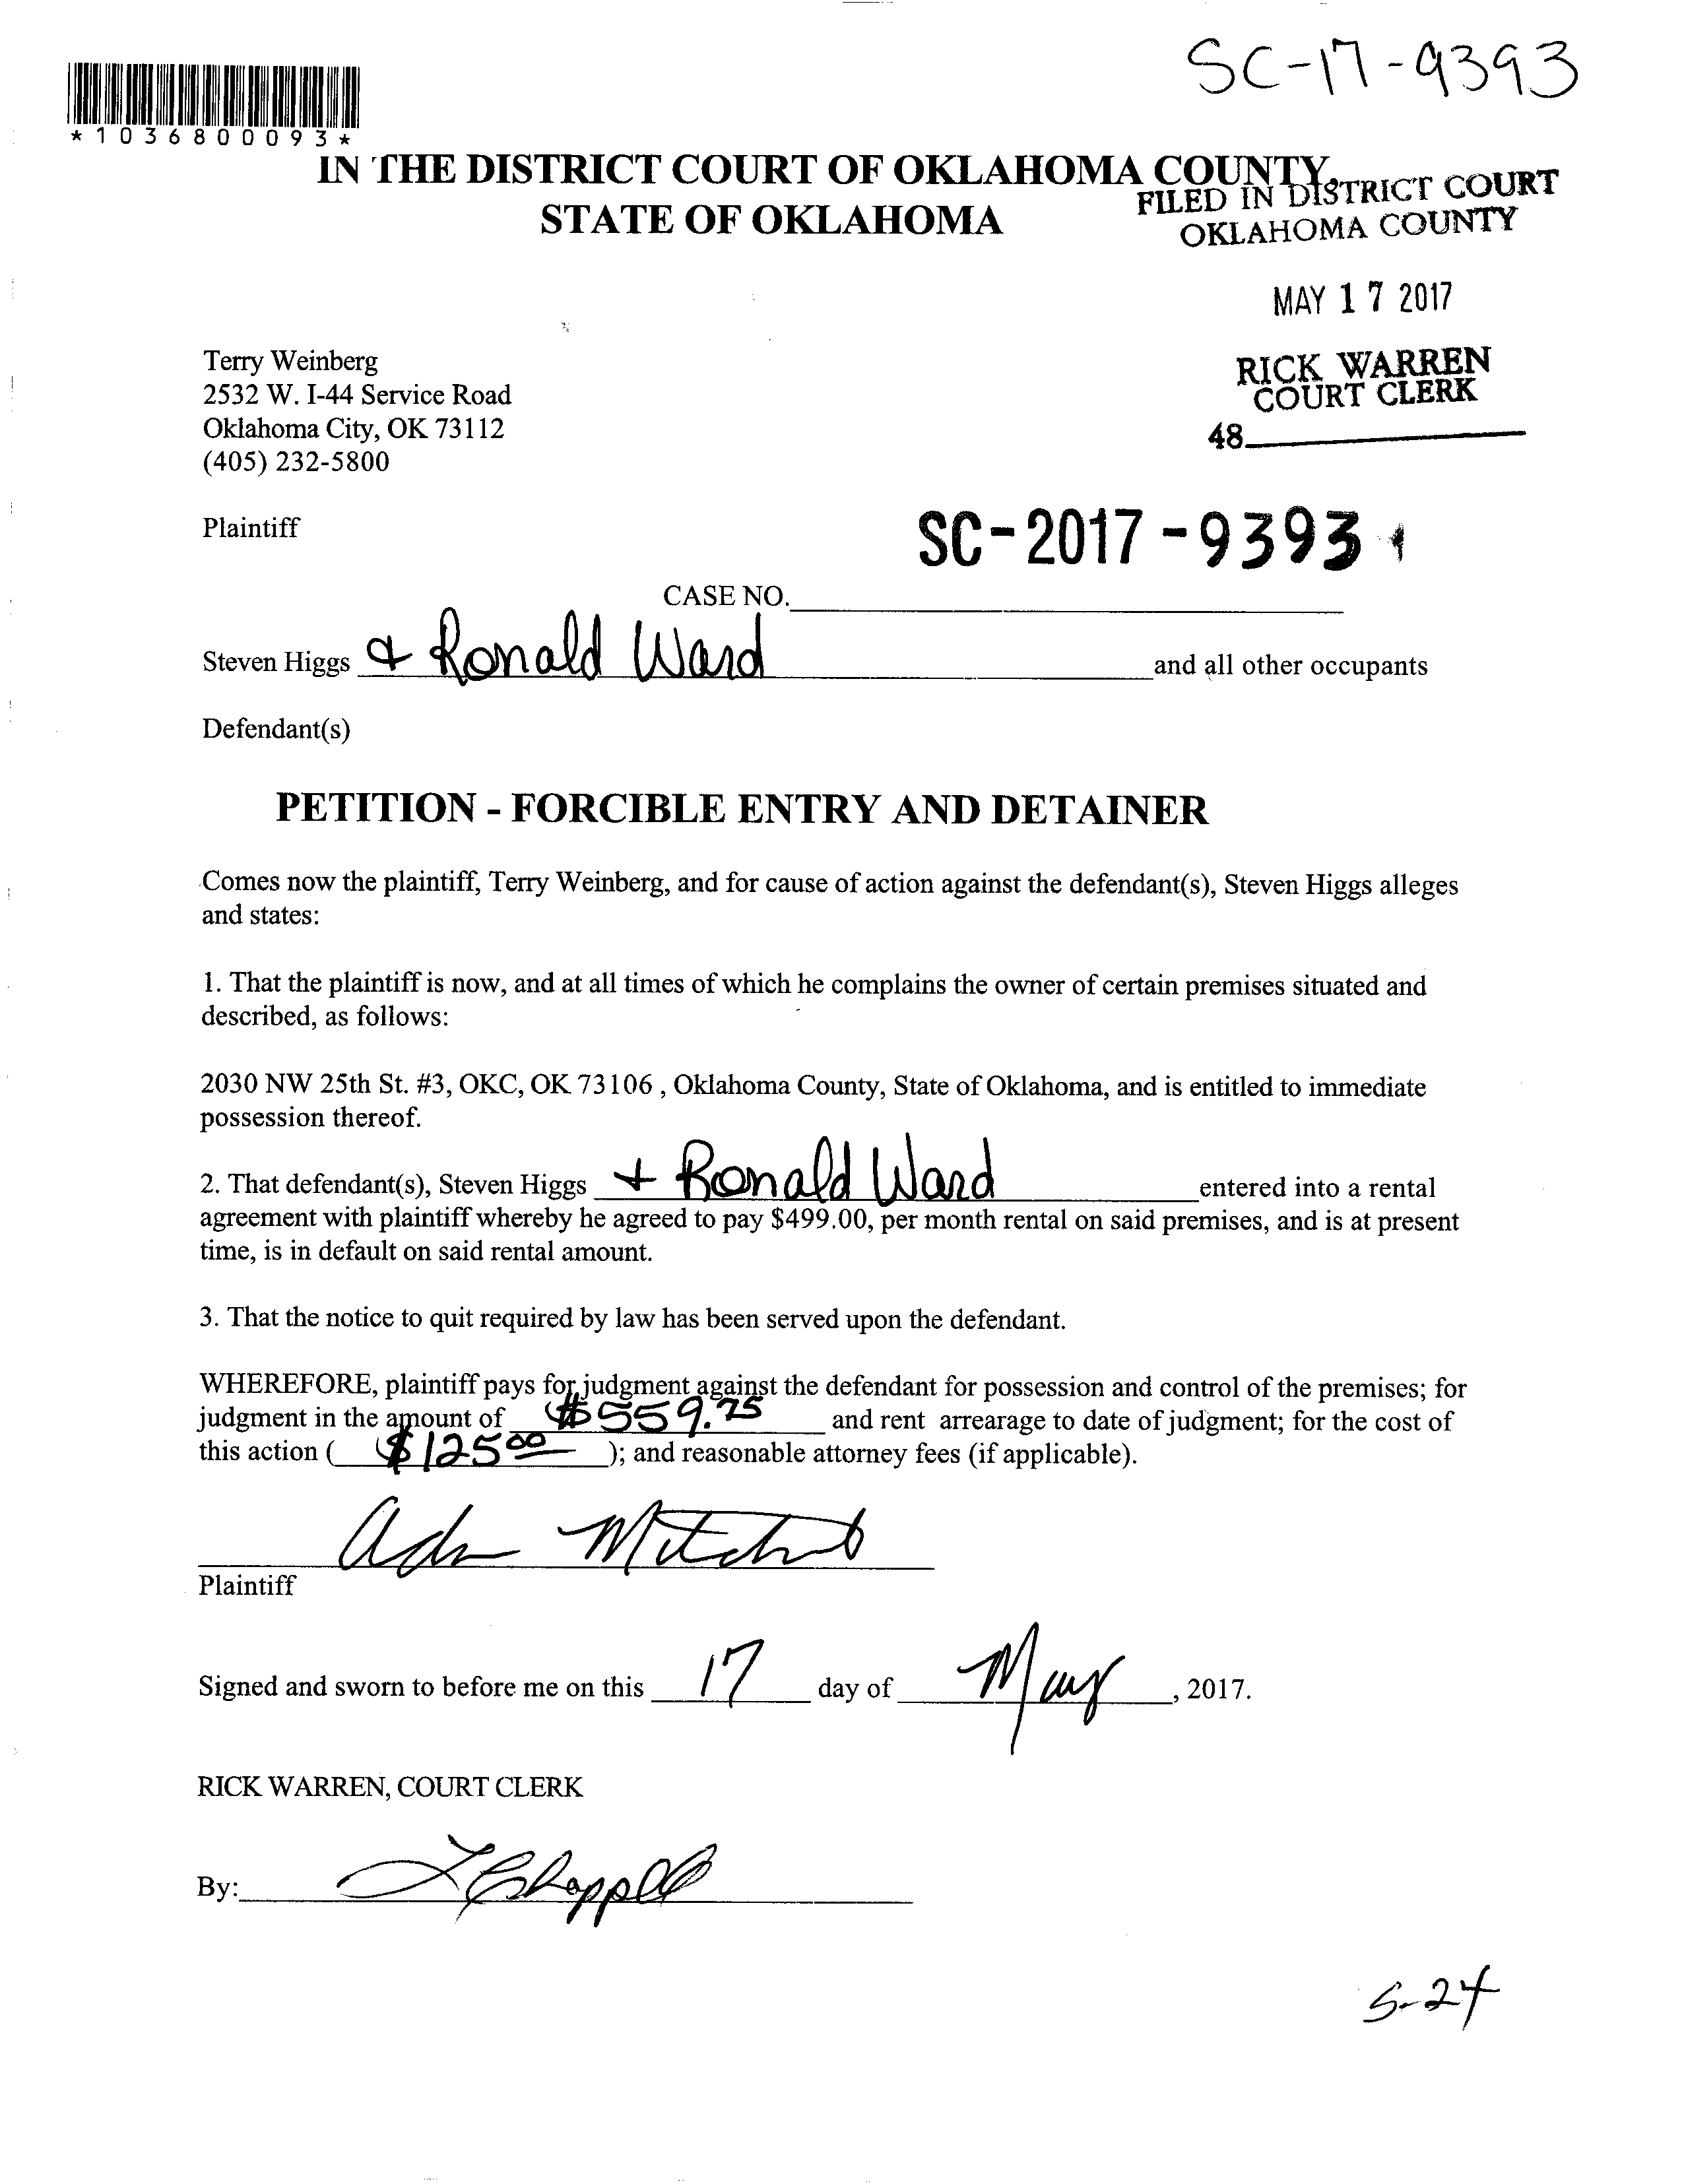 SC-17-9393
*1036800093*
IN THE DISTRICT COURT OF OKLAHOMA COUNTY,
STATE OF OKLAHOMA
FILED IN DISTRICT COURT
OKLAHOMA COUNTY
MAY 17 2017
RICK WARREN
COURT CLERK
48
Terry Weinberg
2532 W. I-44 Service Road
Oklahoma City, OK 73112
(405) 232-5800
Plaintiff
SC-2017-9393
CASE NO.
Steven Higgs & Ronald Ward and all other occupants
Defendant(s)
PETITION - FORCIBLE ENTRY AND DETAINER
Comes now the plaintiff, Terry Weinberg, and for cause of action against the defendant(s), Steven Higgs alleges
and states:
1. That the plaintiff is now, and at all times of which he complains the owner of certain premises situated and
described, as follows:
2030 NW 25th St. #3, OKC, OK 73106 , Oklahoma County, State of Oklahoma, and is entitled to immediate
possession thereof.
2. That defendant(s), Steven Higgs + Ronald Ward entered into a rental
agreement with plaintiff whereby he agreed to pay $499.00, per month rental on said premises, and is at present
time, is in default on said rental amount.
3. That the notice to quit required by law has been served upon the defendant.
WHEREFORE, plaintiff pays for judgment against the defendant for possession and control of the premises; for
judgment in the amount of $559.75 and rent arrearage to date of judgment; for the cost of
this action ( $125 00 ); and reasonable attorney fees (if applicable).
Plaintiff
Signed and sworn to before me on this 17 day of May, 2017.
RICK WARREN, COURT CLERK
By:
5-24